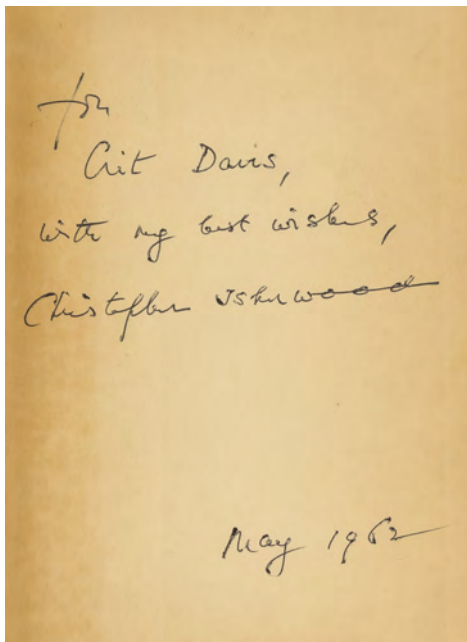 for
Crit Davis,
with my best wishes,
Christopher Isherwood
May 1962